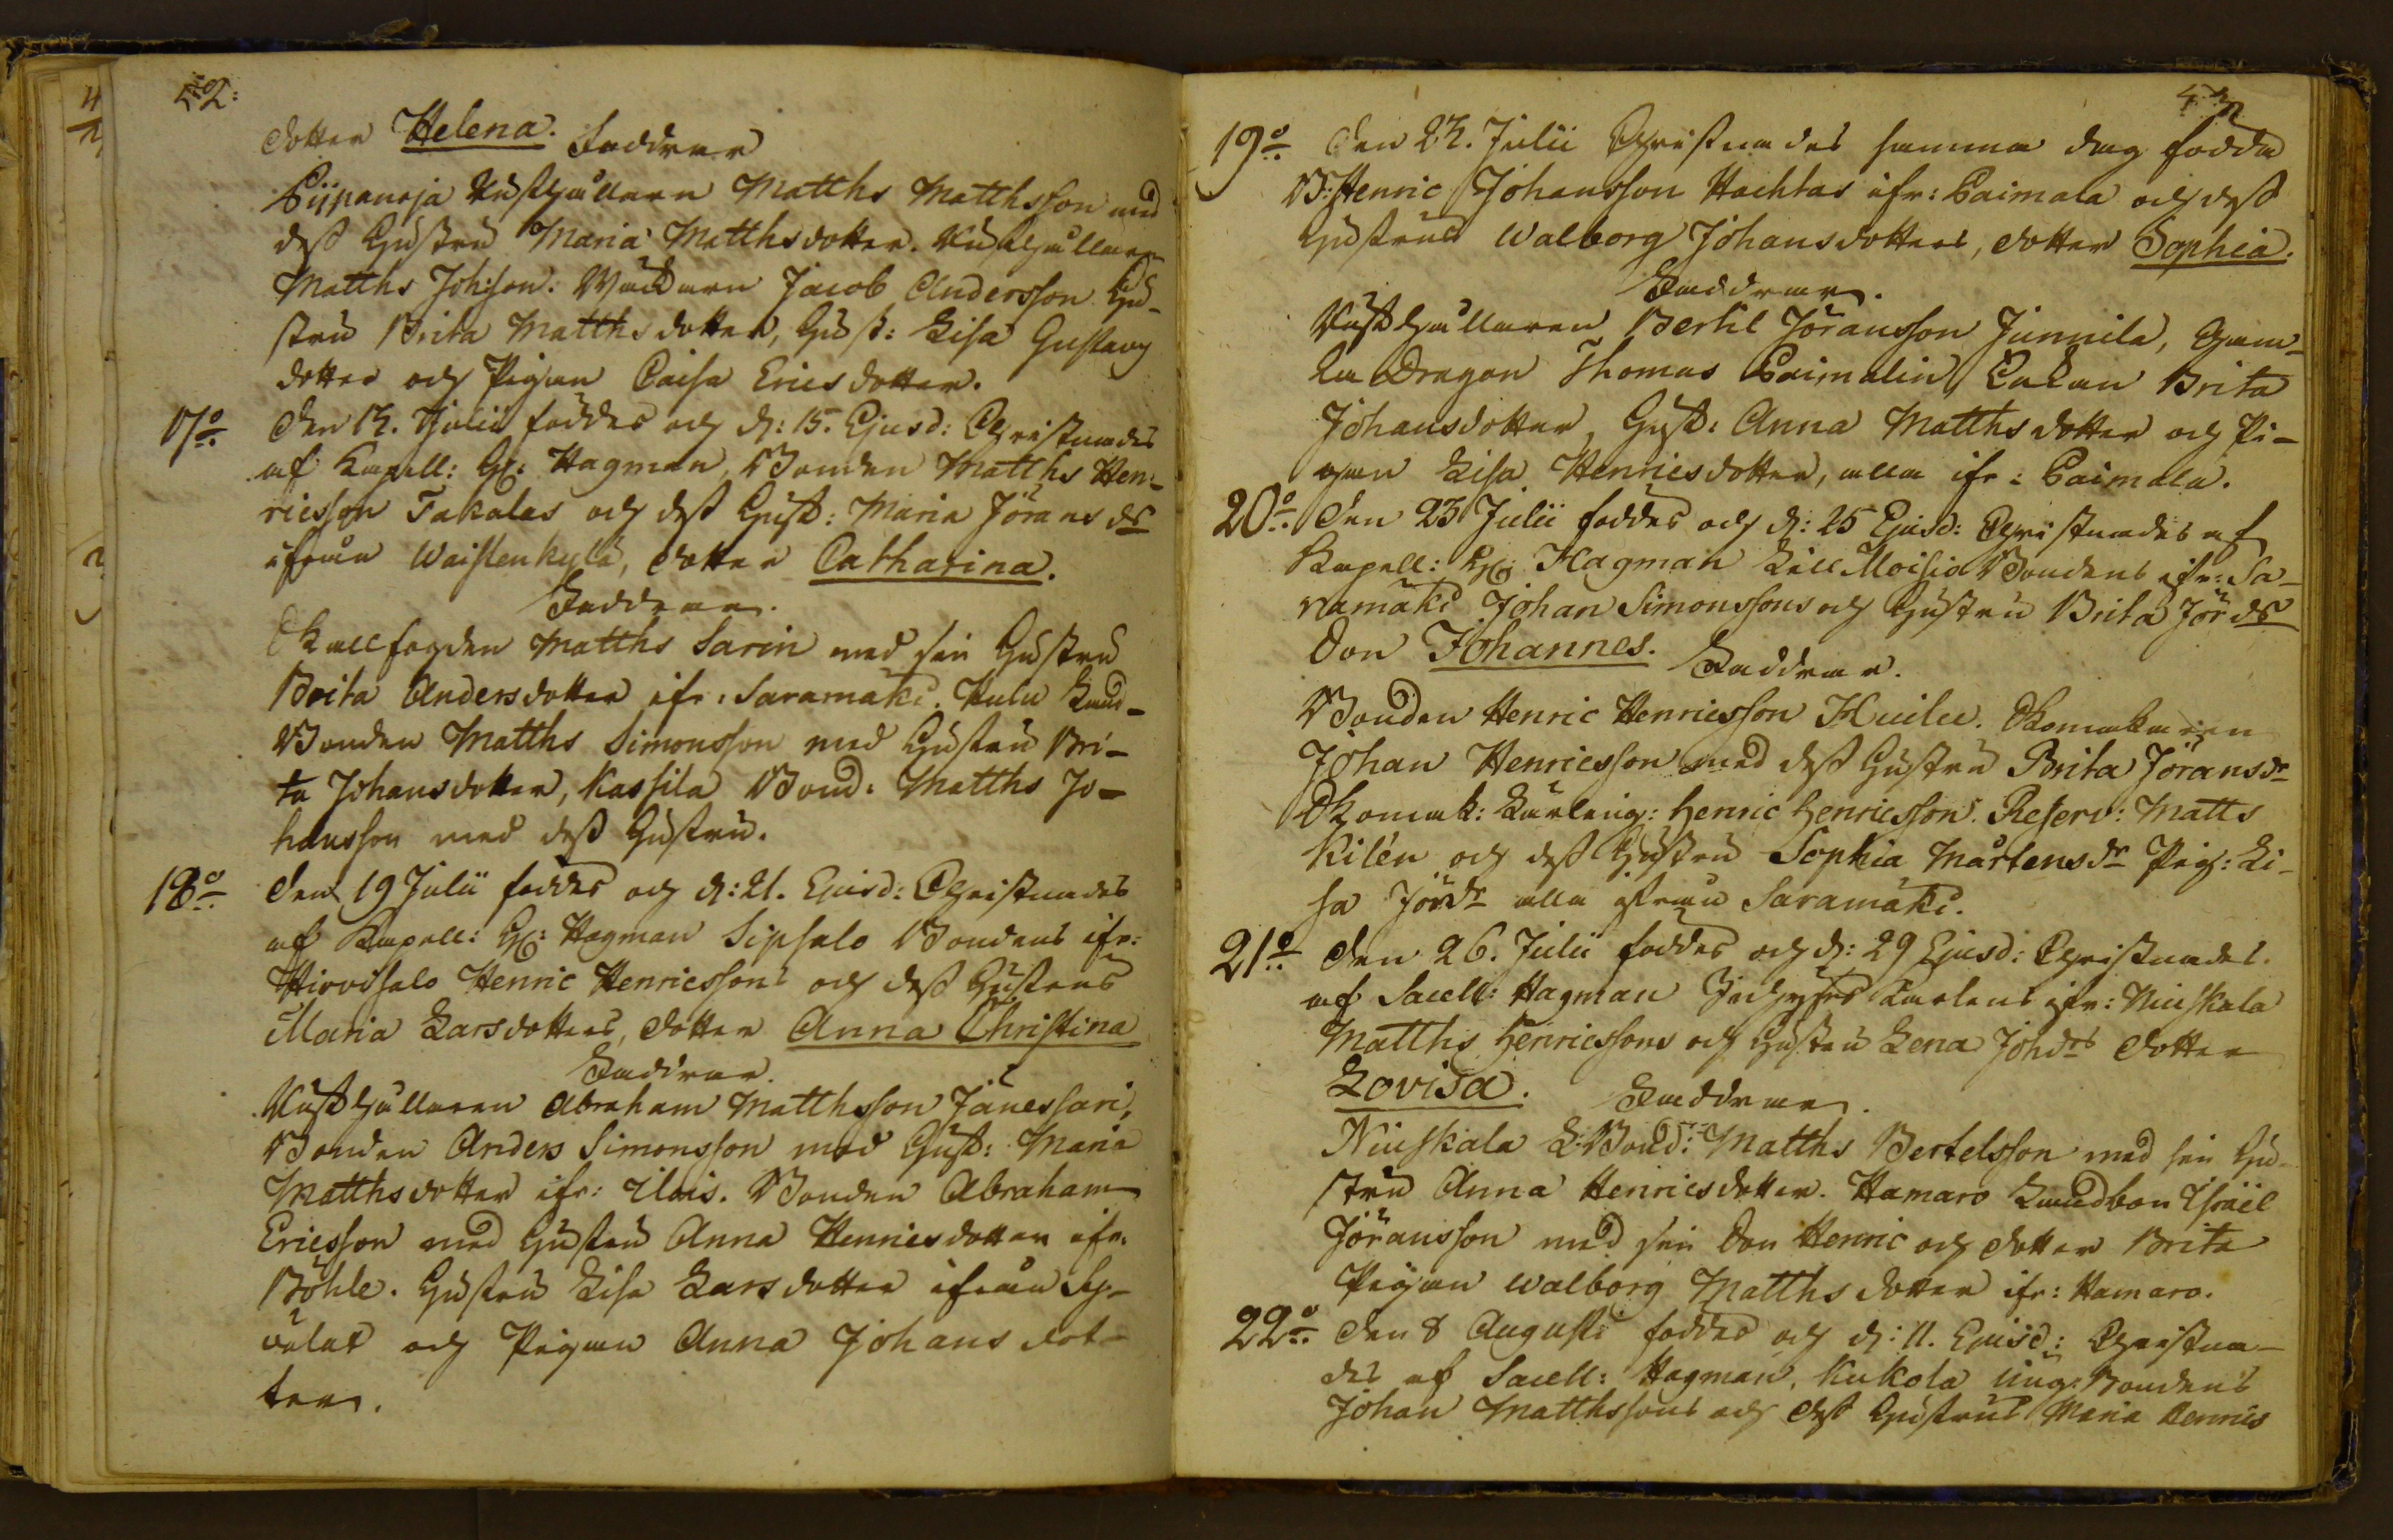 52:
dotter Helena. Faddrar
Piipanoja Rusthållaren Matths Matthsson med
dess Hustru Maria Matthsdotter. Rusthållaren
Matths Johsson. Wäfvaren Jacob Andersson Hu-
stru Brita Matthsdotter, Hust: Lisa Gustavs
dotter och Pigan Caisa Ericsdotter.
17:o Den 12. Julii föddes och d: 15. Ejusd: Christnades
af Kapell: H: Hagman, Bonden Matths Hen-
ricsson Takalas och dess Hust: Maria Jörans dr
ifrån Waistenkylä, dotter Catharina.
Faddrar.
Skallfogden Matths Sarin med sin Hustru
Brita Andersdotter ifr: Saramäki. Hulu Land-
Bonden Matths Simonsson med Hustru Bri-
ta Johansdotter, Kassila Bond: Matths Jo-
hansson med dess Hustru.
18:o Den 19 Julii föddes och d: 21. Ejusd: Christnades
af Kapell: H: Hagman Sipsalo Bondens ifr:
Hirvisalo Henric Henricssons och dess Hustrus
Maria Larsdotters, dotter Anna Christina
Faddrar.
Rusthållaren Abraham Matthsson Jänessari,
Bonden Anders Simonsson med Hust: Maria
Matthsdotter ifr: Ilois. Bonden Abraham
Ericsson med Hustru Anna Henricsdotter ifr.
Böhle. Hustru Lisa Larsdotter ifrån Sy-
välat och Pigan Anna Johans dot-
ter.
53
19:o Den 22. Julii Christnades samma dag födda
B: Henric Johansson Hachtas ifr: Paimala och dess
Hustrus Walborg Johansdotters, dotter Sophia.
Faddrar.
Rusthållaren Bertil Jöransson Junnila, Gam-
la Dragon Thomas Paimalin, Enkan Brita
Johansdotter, Hust: Anna Matthsdotter och Pi-
gan Lisa Henricsdotter, alla ifr: Paimala.
20:o Den 23 Julii föddes och d: 25 Ejusd: Christnades af
Kapell: H: Hagman Lill Moisio Bondens ifr: Sa-
ramäki Johan Simonssons och Hustru Brita Jör ds
Son Johannes. Faddrar.
Bonden Henric Henricsson Huilu. Skomakaren
Johan Henricsson med dess Hustru Brita Jöransdr
Skomak: Lärling: Henric Henricsson. Reserv: Matts
Kilén och dess Hustru Sophia Mårtensdr Pig: Li-
sa Jördr alla ifrån Saramäki.
21:o Den 26. Julii föddes och d: 29 Ejusd: Christnades.
af Sacell: Hagman Inhyses Karlens ifr: Niuskala
Matths Henricssons och Hustru Lena Johdrs dotter
Lovisa. Faddrar.
Niuskala L:Bond: Matths Bertelsson med sin Hu-
stru Anna Henricsdotter. Hamaro Landbon Israël
Jöransson med sin Son Henric och dotter Brita
Pigan Walborg Matthsdotter ifr: Hamaro.
22:o Den 8 Augusti föddes och d: 11. Ejusd: Christna-
des af Sacell: Hagman, Kukola Ung: Bondens
Johan Matthssons och dess Hustrus Maria Henrics